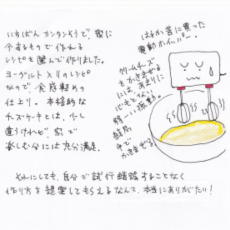 いちばんカンタンそうで、家に
今あるもので作れる
レシピを選んで作りました。
ヨーグルト入りのレシピ
なので、食感軽めの
仕上り。本格的な
チーズケーキとは、少し
違うけれど、家で
楽しむ分には充分満足。
はるか昔に買った
電動ホイッパー。
クリームチーズ
をかきまぜる
には、あまりに
パワーが
弱い振動。
結局
手で
かきまぜる。
それにしても、自分で試行錯誤することなく
作り方を提案してもらえるなんて、本当にありがたい!